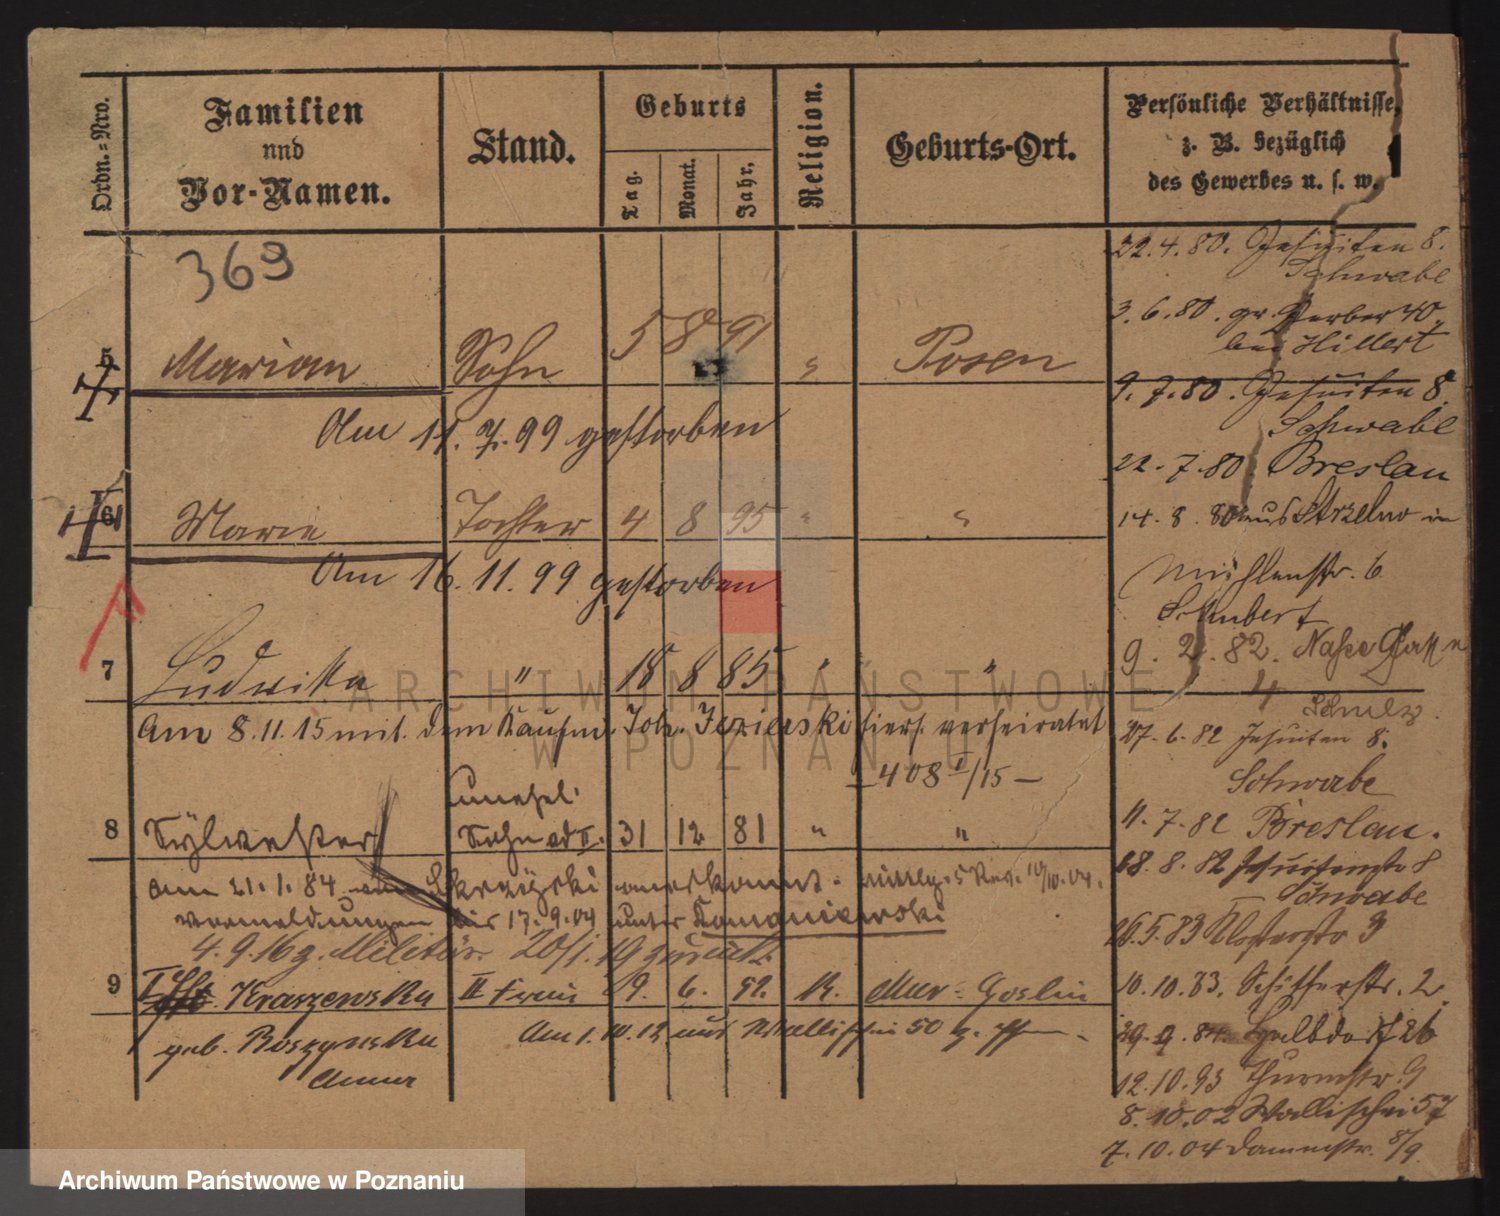 Ordn.-Nro.
Familien
und
Vor-Namen.
Stand.
Geburts
Tag.
Monat.
Jahr.
Religion.
Geburts-Ort.
Persönliche Verhältnisse,
z. B. bezüglich
des Gewerbes u. s. w.
369
5 Marian Sohn 5 8 91 " Posen
Am 11. 7. 99 gestorben
6 Marie Tochter 4 8 95 " "
Am 16. 11. 99 gestorben
7 Ludwika " 18 8 85 " "
Am 8. 11. 15 mit dem Kaufm. Joh. Jezierski hierf. verheiratet
408 I/15 –
unehel.
8 Sylwester Sohn ad II. 31 12 81 " "
am 21. 1. 84 anerkannt. 10/10. 04.
bis 17. 9. 04 unter Komaniewski
4. 9. 16 z. Militär. 20/1. 19 zurück
9 Kraszewska II Frau 19. 6. 52. K. Mur. Goslin
geb. Roszynska Am 1. 10. 12 aus Wallischei 50
Anna
22. 4. 80. Jesuiten 8.
Schwabe
3. 6. 80. gr. Gerber 40,
bei Hillert
9. 7. 80. Jesuiten 8.
Schwabe
22. 7. 80. Breslau
14. 8. 80 aus Strzelno in
Mühlenstr. 6
Schubert
9. 2. 82. Nasse Gasse
4
27. 6. 82 Jesuiten 8.
Schwabe
11. 7. 82 Breslau.
18. 8. 82 Jesuitenstr 8
Schwabe
26. 5. 83 Klosterstr 3
10. 10. 83. Schifferstr. 2.
29. 9. 84. Halbdorf 26
12. 10. 93 Thurmstr. 9
8. 10. 02 Wallischei 57
7. 10. 04 Dammstr. 8/9
ARCHIWUM PAŃSTWOWE
W POZNANIU
Archiwum Państwowe w Poznaniu